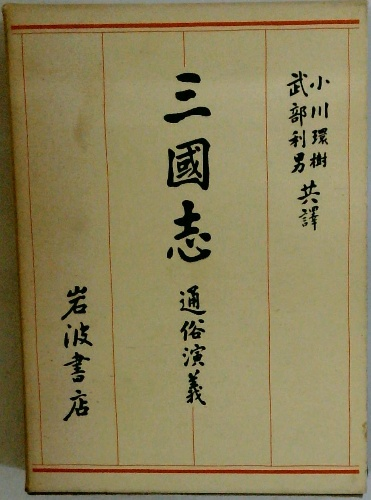 小川環樹
武部利男
共譯
三國志
通俗演義
岩波書店